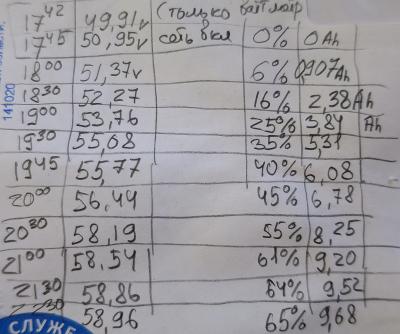 17 42 49,91v (только ваттметр
17 45 50,95v сеть вкл 0% 0Ah
18 00 51,37v 6% 0,907Ah
18 30 52,27 16% 2,38Ah
19 00 53,76 25% 3,84 Ah
19 30 55,08 35% 5,31
19 45 55,77 40% 6,08
20 00 56,44 45% 6,78
20 30 58,19 55% 8,25
21 00 58,54 61% 9,20
21,30 58,86 64% 9,52
58,96 65% 9,68
141020
СЛУЖЕ